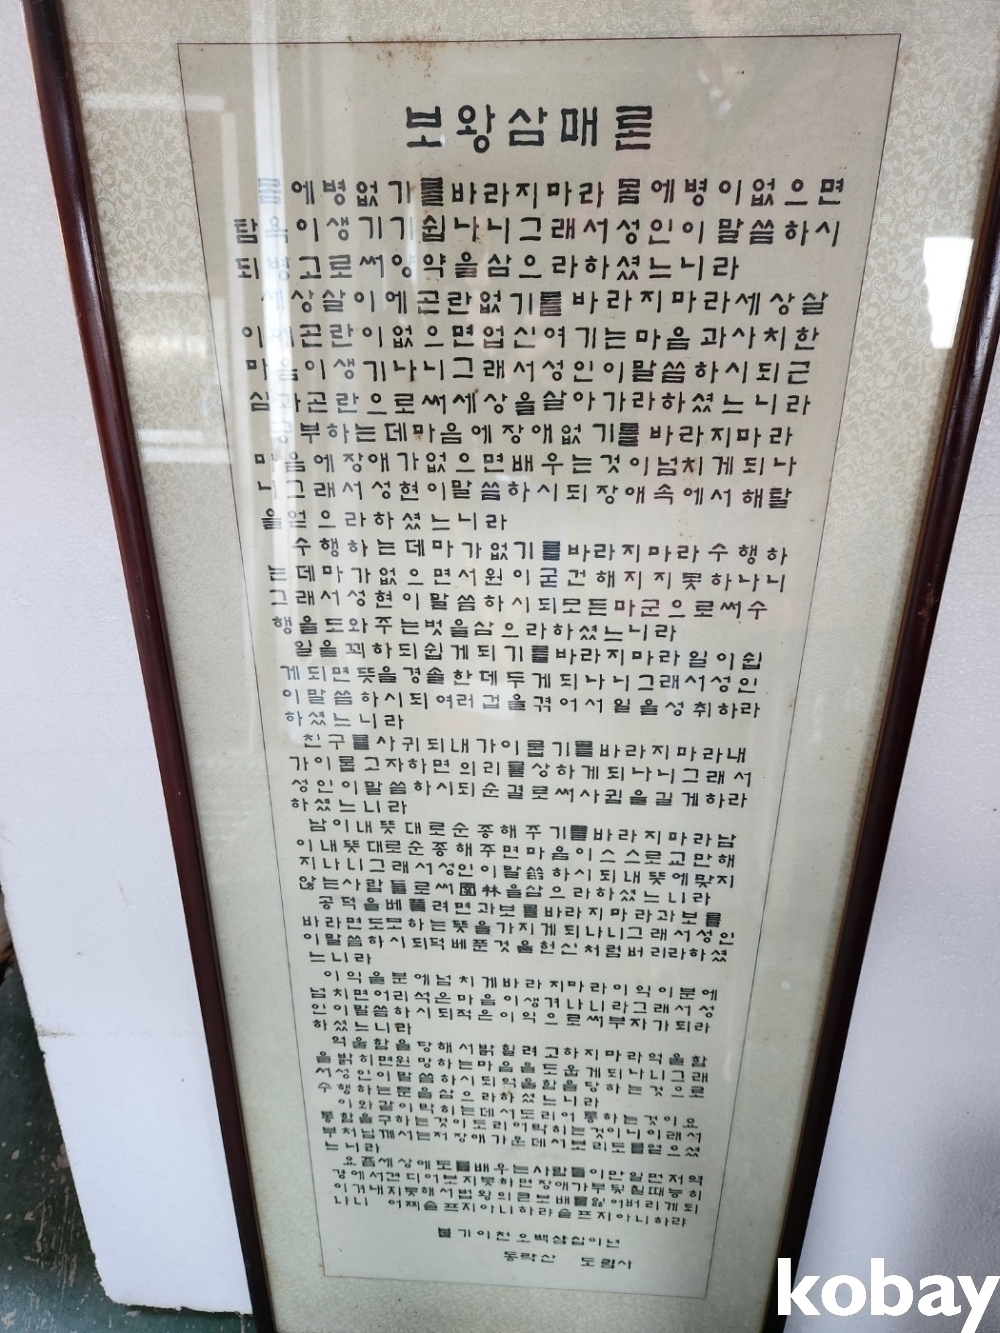 보왕삼매론
몸에병없기를바라지마라 몸에병이없으면
탐욕이생기기쉽나니그래서성인이말씀하시
되병고로써양약을삼으라하셨느니라
세상살이에곤란없기를바라지마라세상살
이에곤란이없으면업신여기는마음과사치한
마음이생기나니그래서성인이말씀하시되근
심과곤란으로써세상을살아가라하셨느니라
공부하는데마음에장애없기를바라지마라
마음에장애가없으면배우는것이넘치게되나
니그래서성현이말씀하시되장애속에서해탈
을얻으라하셨느니라
수행하는데마가없기를바라지마라수행하
는데마가없으면서원이굳건해지지못하나니
그래서성현이말씀하시되모든마군으로써수
행을도와주는벗을삼으라하셨느니라
일을꾀하되쉽게되기를바라지마라일이쉽
게되면뜻을경솔한데두게되나니그래서성인
이말씀하시되여러겁을겪어서일을성취하라
하셨느니라
친구를사귀되내가이롭기를바라지마라내
가이롭고자하면의리를상하게되나니그래서
성인이말씀하시되순결로써사귐을길게하라
하셨느니라
남이내뜻대로순종해주기를바라지마라남
이내뜻대로순종해주면마음이스스로교만해
지나니그래서성인이말씀하시되내뜻에맞지
않는사람들로써園林을삼으라하셨느니라
공덕을베풀려면과보를바라지마라과보를
바라면도모하는뜻을가지게되나니그래서성인
이말씀하시되덕베푼것을헌신처럼버리라하셨
느니라
이익을분에넘치게바라지마라이익이분에
넘치면어리석은마음이생겨나니라그래서성
인이말씀하시되적은이익으로써부자가되라
하셨느니라
억울함을당해서밝힐려고하지마라억울함
을밝히면원망하는마음을도웁게되나니그래
서성인이말씀하시되억울함을당하는것으로
수행하는문을삼으라하셨느니라
이와같이막히는데서도리어통하는것이요
통함을구하는것이도리어막히는것이니이래서
부처님께서는저장애가운데서보리도를얻으셨
느니라
요즘세상에도를배우는사람들이만일먼저역
경에서견디어보지못하면장애가부딪칠때능히
이겨내지못해서법왕의큰보배를잃어버리게되
나니 어찌슬프지아니하랴슬프지아니하랴
불기이천오백삼십이년
동락산 도림사
kobay